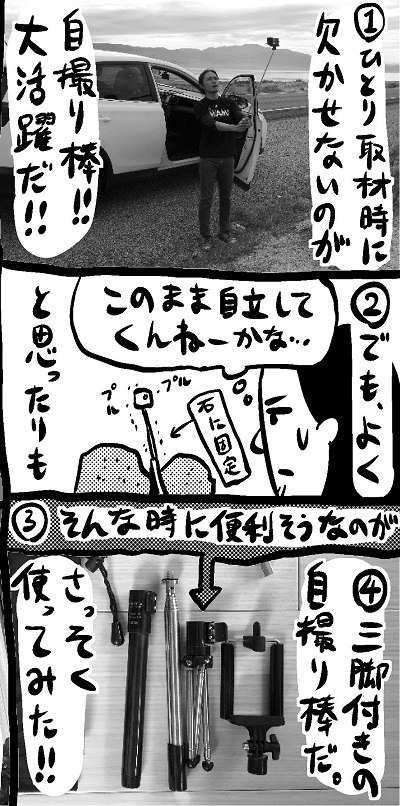 ①ひとり取材時に
欠かせないのが
自撮り棒!!
大活躍だ!!
②でも、よく
このまま自立して
くんねーかな…
プル
プル
石に固定
と思ったりも
③そんな時に便利そうなのが
④三脚付きの
自撮り棒だ。
さっそく
使ってみた!!